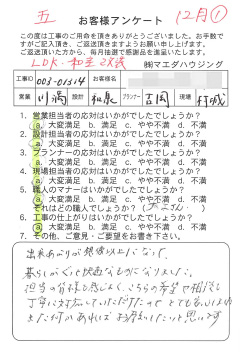 五 お客様アンケート 12月①
この度は工事のご用命を頂きありがとうございました。お手数で
すがご記入頂き、ご返送頂きますようお願い申し上げます。
ご返送頂いた方から、毎月抽選で感謝品を進呈いたします。
LDK・和室改装 ㈱マエダハウジング
工事ID 003-01314 お客様名
営業 川満 設計 プランナー 吉岡 現場
1. 営業担当者の応対はいかがでしたでしょうか？
a. 大変満足 b. 満足 c. やや不満 d. 不満
2. 設計担当者の応対はいかがでしたでしょうか？
a. 大変満足 b. 満足 c. やや不満 d. 不満
3. プランナーの応対はいかがでしたでしょうか？
a. 大変満足 b. 満足 c. やや不満 d. 不満
4. 現場担当者の応対はいかがでしたでしょうか？
a. 大変満足 b. 満足 c. やや不満 d. 不満
5. 職人のマナーはいかがでしたでしょうか？
a. 大変満足 b. 満足 c. やや不満 d. 不満
それはどの職人でしょうか？
6. 工事の仕上がりはいかがでしたでしょうか？
a. 大変満足 b. 満足 c. やや不満 d. 不満
7. その他、ご意見・ご要望をお書き下さい。
出来あがりが想像以上に
暮らしがぐっと快適なものになりました。
担当の皆様も感じよく、こちらの希望や相談に
丁寧に対応していただけたので とても
また何かあれば お願いしたいと思います